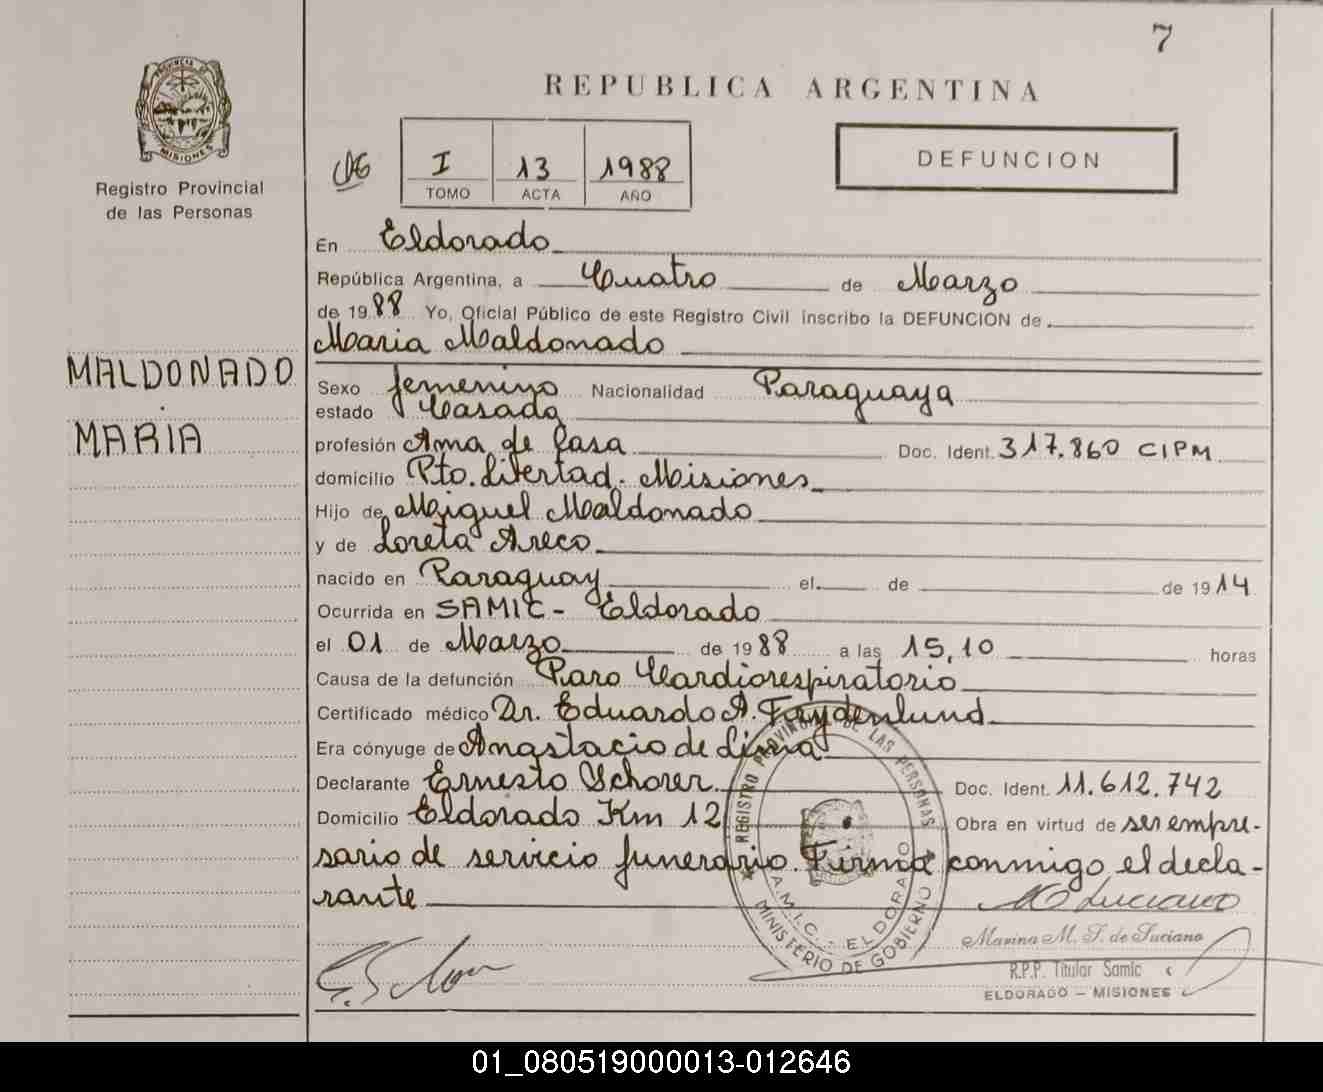 7
REPUBLICA ARGENTINA
PROVINCIA DE
MISIONES
Registro Provincial
de las Personas
I 13 1988
TOMO ACTA AÑO
DEFUNCION
En Eldorado
República Argentina, a Cuatro de Marzo
de 1988 Yo, Oficial Público de este Registro Civil inscribo la DEFUNCION de
Maria Maldonado
MALDONADO
MARIA
Sexo femenino Nacionalidad Paraguaya
estado Casada
profesión Ama de Casa Doc. Ident. 317.860 CIPM
domicilio Pto. Libertad. Misiones
Hijo de Miguel Maldonado
y de Loreta Areco
nacido en Paraguay el de de 1914
Ocurrida en SAMIC - Eldorado
el 01 de Marzo de 1988 a las 15,10 horas
Causa de la defunción Paro Cardiorespiratorio
Certificado médico Dr. Eduardo A.
Era cónyuge de Anastacio de Lima
Declarante Ernesto Schorer Doc. Ident. 11.612.742
Domicilio Eldorado Km 12 Obra en virtud de ser empre-
sario de servicio funerario. Firma conmigo el decla-
rante
REGISTRO PROVINCIAL DE LAS PERSONAS
S.A.M.I.C. - ELDORADO
MINISTERIO DE GOBIERNO
Luciano
Marina M. F. de Luciano
R.P.P. Titular Samic
ELDORADO - MISIONES
01_080519000013-012646